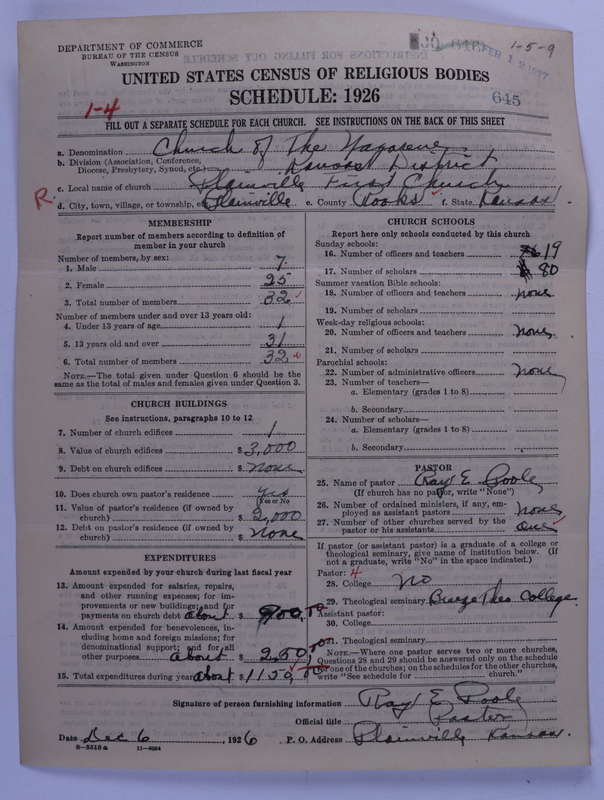 DEPARTMENT OF COMMERCE
BUREAU OF THE CENSUS
WASHINGTON
FEB 12 1927
1-5-9
UNITED STATES CENSUS OF RELIGIOUS BODIES
SCHEDULE: 1926
645
1-4
FILL OUT A SEPARATE SCHEDULE FOR EACH CHURCH. SEE INSTRUCTIONS ON THE BACK OF THIS SHEET
a. Denomination Church of The Nazarene
b. Division (Association, Conference, Diocese, Presbytery, Synod, etc.) Kansas District
c. Local name of church Plainville First Church
R.
d. City, town, village, or township, etc. Plainville e. County Rooks f. State Kansas.
MEMBERSHIP
Report number of members according to definition of member in your church
Number of members, by sex:
1. Male 7
2. Female 25
3. Total number of members 32
Number of members under and over 13 years old:
4. Under 13 years of age 1
5. 13 years old and over 31
6. Total number of members 32
NOTE.—The total given under Question 6 should be the
same as the total of males and females given under Question 3.
CHURCH BUILDINGS
See instructions, paragraphs 10 to 12
7. Number of church edifices 1
8. Value of church edifices $ 3,000
9. Debt on church edifices $ none
10. Does church own pastor's residence yes
Yes or No
11. Value of pastor's residence (if owned by
church) $ 2,000
12. Debt on pastor's residence (if owned by
church) $ None
EXPENDITURES
Amount expended by your church during last fiscal year
13. Amount expended for salaries, repairs,
and other running expenses; for im-
provements or new buildings; and for
payments on church debt about $ 900,00
14. Amount expended for benevolences, in-
cluding home and foreign missions; for
denominational support; and for all
other purposes about $ 250,00
15. Total expenditures during year about $ 1150,
CHURCH SCHOOLS
Report here only schools conducted by this church
Sunday schools:
16. Number of officers and teachers 19
17. Number of scholars 80
Summer vacation Bible schools:
18. Number of officers and teachers none
19. Number of scholars
Week-day religious schools:
20. Number of officers and teachers none
21. Number of scholars
Parochial schools:
22. Number of administrative officers none
23. Number of teachers—
a. Elementary (grades 1 to 8)
b. Secondary
24. Number of scholars—
a. Elementary (grades 1 to 8)
b. Secondary
PASTOR
25. Name of pastor Ray E Poole
(If church has no pastor, write "None")
26. Number of ordained ministers, if any, em-
ployed as assistant pastors none
27. Number of other churches served by the
pastor or his assistants one
If pastor (or assistant pastor) is a graduate of a college or
theological seminary, give name of institution below. (If
not a graduate, write "No" in the space indicated.)
Pastor: 4
28. College No
29. Theological seminary Breeze Theo College.
Assistant pastor:
30. College
31. Theological seminary
NOTE.—Where one pastor serves two or more churches,
Questions 28 and 29 should be answered only on the schedule
for one of the churches; on the schedules for the other churches,
write "See schedule for church."
Signature of person furnishing information Ray E Poole
Official title Pastor
Date Dec 6, 1926 P. O. Address Plainville Kansas.
8—5518a 11—9054